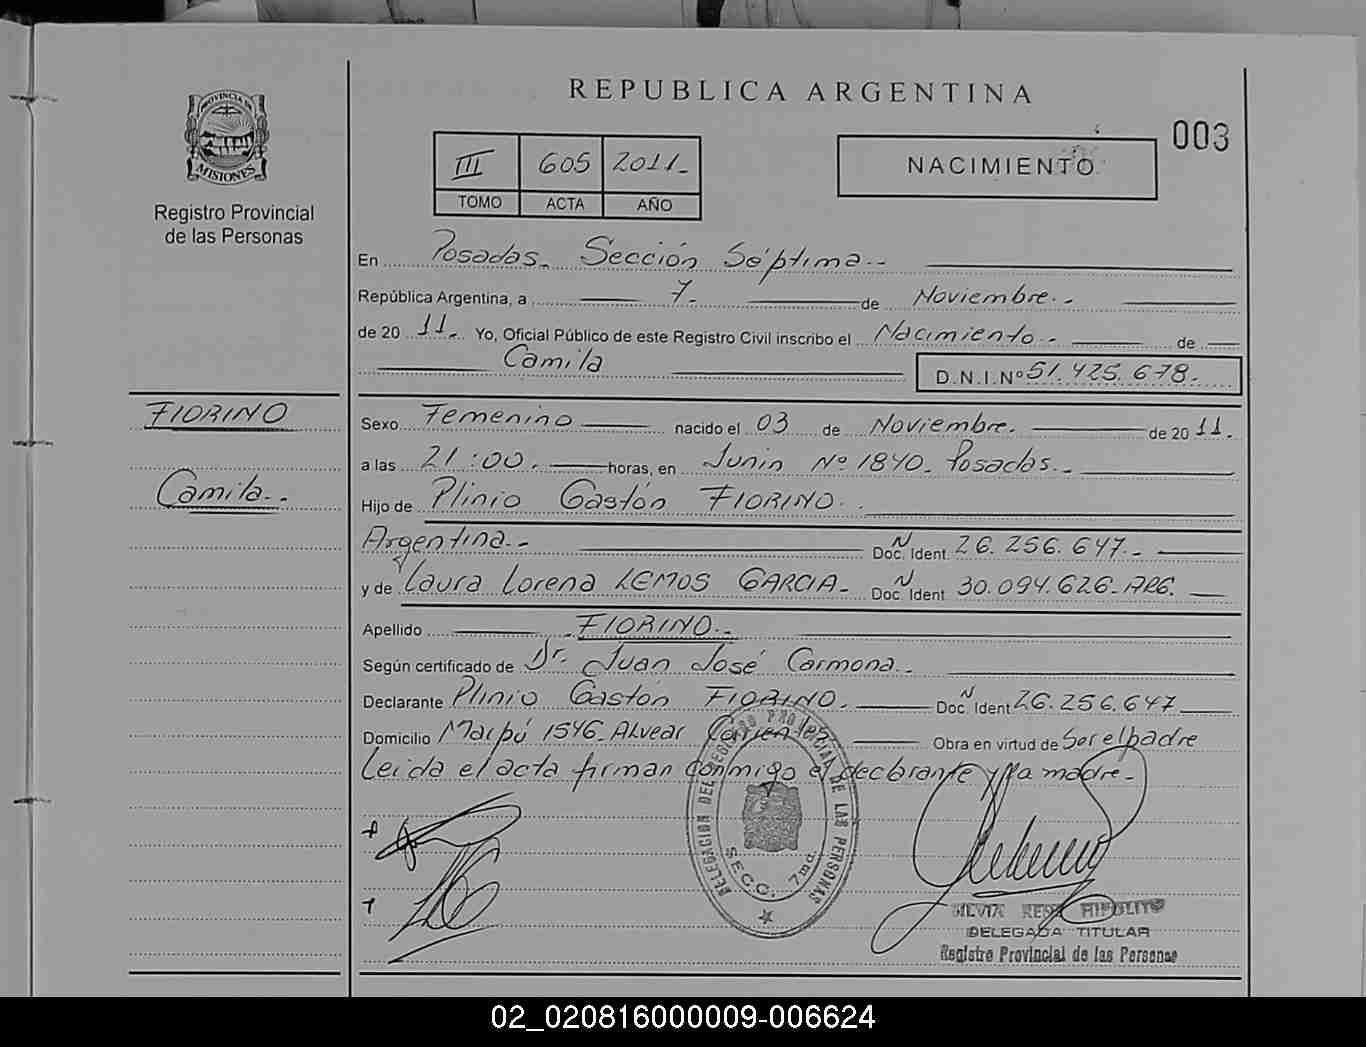 REPUBLICA ARGENTINA
003
PROVINCIA DE
MISIONES
Registro Provincial
de las Personas
III 605 2011.-
TOMO ACTA AÑO
NACIMIENTO
En Posadas. Sección Séptima.-
República Argentina, a 7. de Noviembre.-
de 20 11.- Yo, Oficial Público de este Registro Civil inscribo el Nacimiento.- de
Camila D.N.I.Nº 51.425.678.
FIORINO
Camila.-
Sexo Femenino nacido el 03 de Noviembre. de 20 11.
a las 21:00. horas, en Junin Nº 1840. Posadas.-
Hijo de Plinio Gastón FIORINO.
Argentina.- Doc. Ident. N 26.256.647.-
y de Laura Lorena LEMOS GARCIA.- Doc. Ident. N 30.094.626.ARG.
Apellido FIORINO.-
Según certificado de Dr. Juan José Carmona.-
Declarante Plinio Gastón FIORINO. Doc. Ident. N 26.256.647
Domicilio Maipú 1546. Alvear Corrientes Obra en virtud de Ser el padre
Leida el acta firman conmigo el declarante y la madre.-
DELEGACION DEL REGISTRO PROVINCIAL DE LAS PERSONAS
SECC. 7ma.
SILVIA HIPOLITO
DELEGADA TITULAR
Registro Provincial de las Personas
02_020816000009-006624